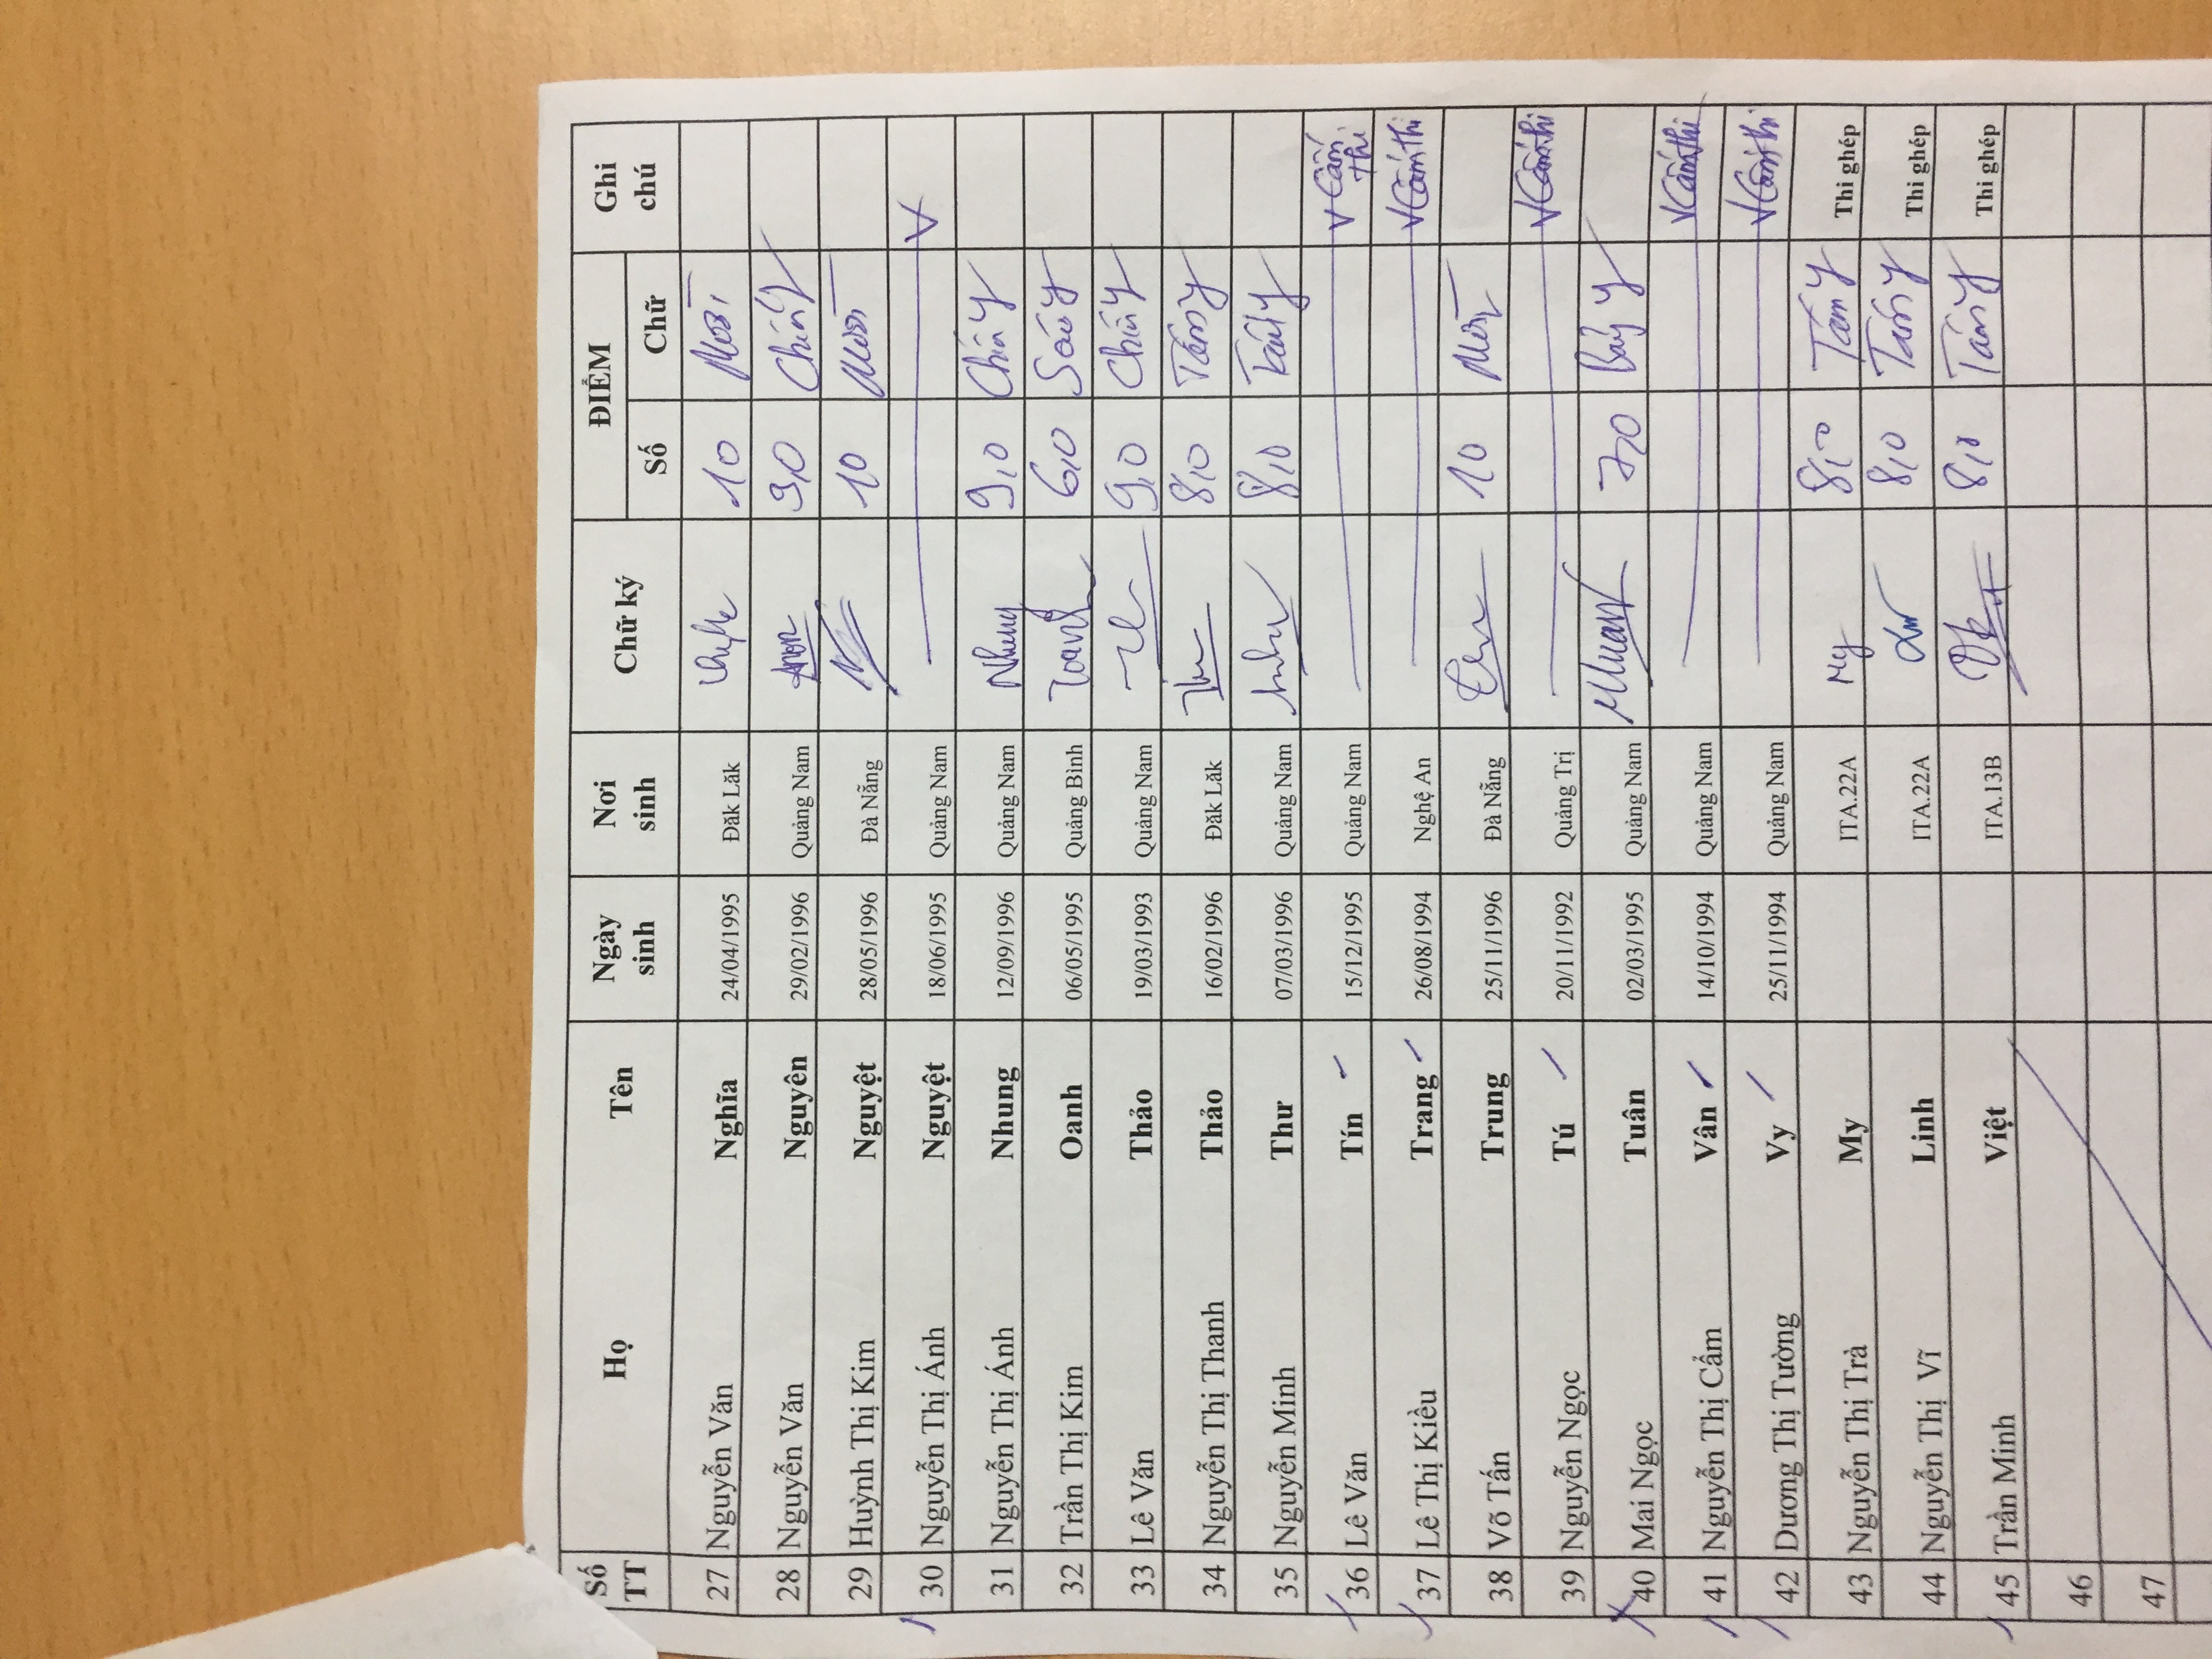 Số TT Họ Tên Ngày sinh Nơi sinh Chữ ký ĐIỂM Số Chữ Ghi chú
27 Nguyễn Văn Nghĩa 24/04/1995 Đăk Lăk 10 Mười
28 Nguyễn Văn Nguyên 29/02/1996 Quảng Nam 9,0 Chín
29 Huỳnh Thị Kim Nguyệt 28/05/1996 Đà Nẵng 10 Mười
30 Nguyễn Thị Ánh Nguyệt 18/06/1995 Quảng Nam V
31 Nguyễn Thị Ánh Nhung 12/09/1996 Quảng Nam Nhung 9,0 Chín
32 Trần Thị Kim Oanh 06/05/1995 Quảng Bình Oanh 6,0 Sáu
33 Lê Văn Thảo 19/03/1993 Quảng Nam 9,0 Chín
34 Nguyễn Thị Thanh Thảo 16/02/1996 Đăk Lăk 8,0 Tám
35 Nguyễn Minh Thư 07/03/1996 Quảng Nam 8,0 Tám
36 Lê Văn Tín 15/12/1995 Quảng Nam V Cấm thi
37 Lê Thị Kiều Trang 26/08/1994 Nghệ An V Cấm thi
38 Võ Tấn Trung 25/11/1996 Đà Nẵng 10 Mười
39 Nguyễn Ngọc Tú 20/11/1992 Quảng Trị V Cấm thi
40 Mai Ngọc Tuân 02/03/1995 Quảng Nam 7,0 Bảy
41 Nguyễn Thị Cẩm Vân 14/10/1994 Quảng Nam V Cấm thi
42 Dương Thị Tường Vy 25/11/1994 Quảng Nam V Cấm thi
43 Nguyễn Thị Trà My ITA.22A My 8,0 Tám Thi ghép
44 Nguyễn Thị Vĩ Linh ITA.22A 8,0 Tám Thi ghép
45 Trần Minh Việt ITA.13B 8,0 Tám Thi ghép
46
47